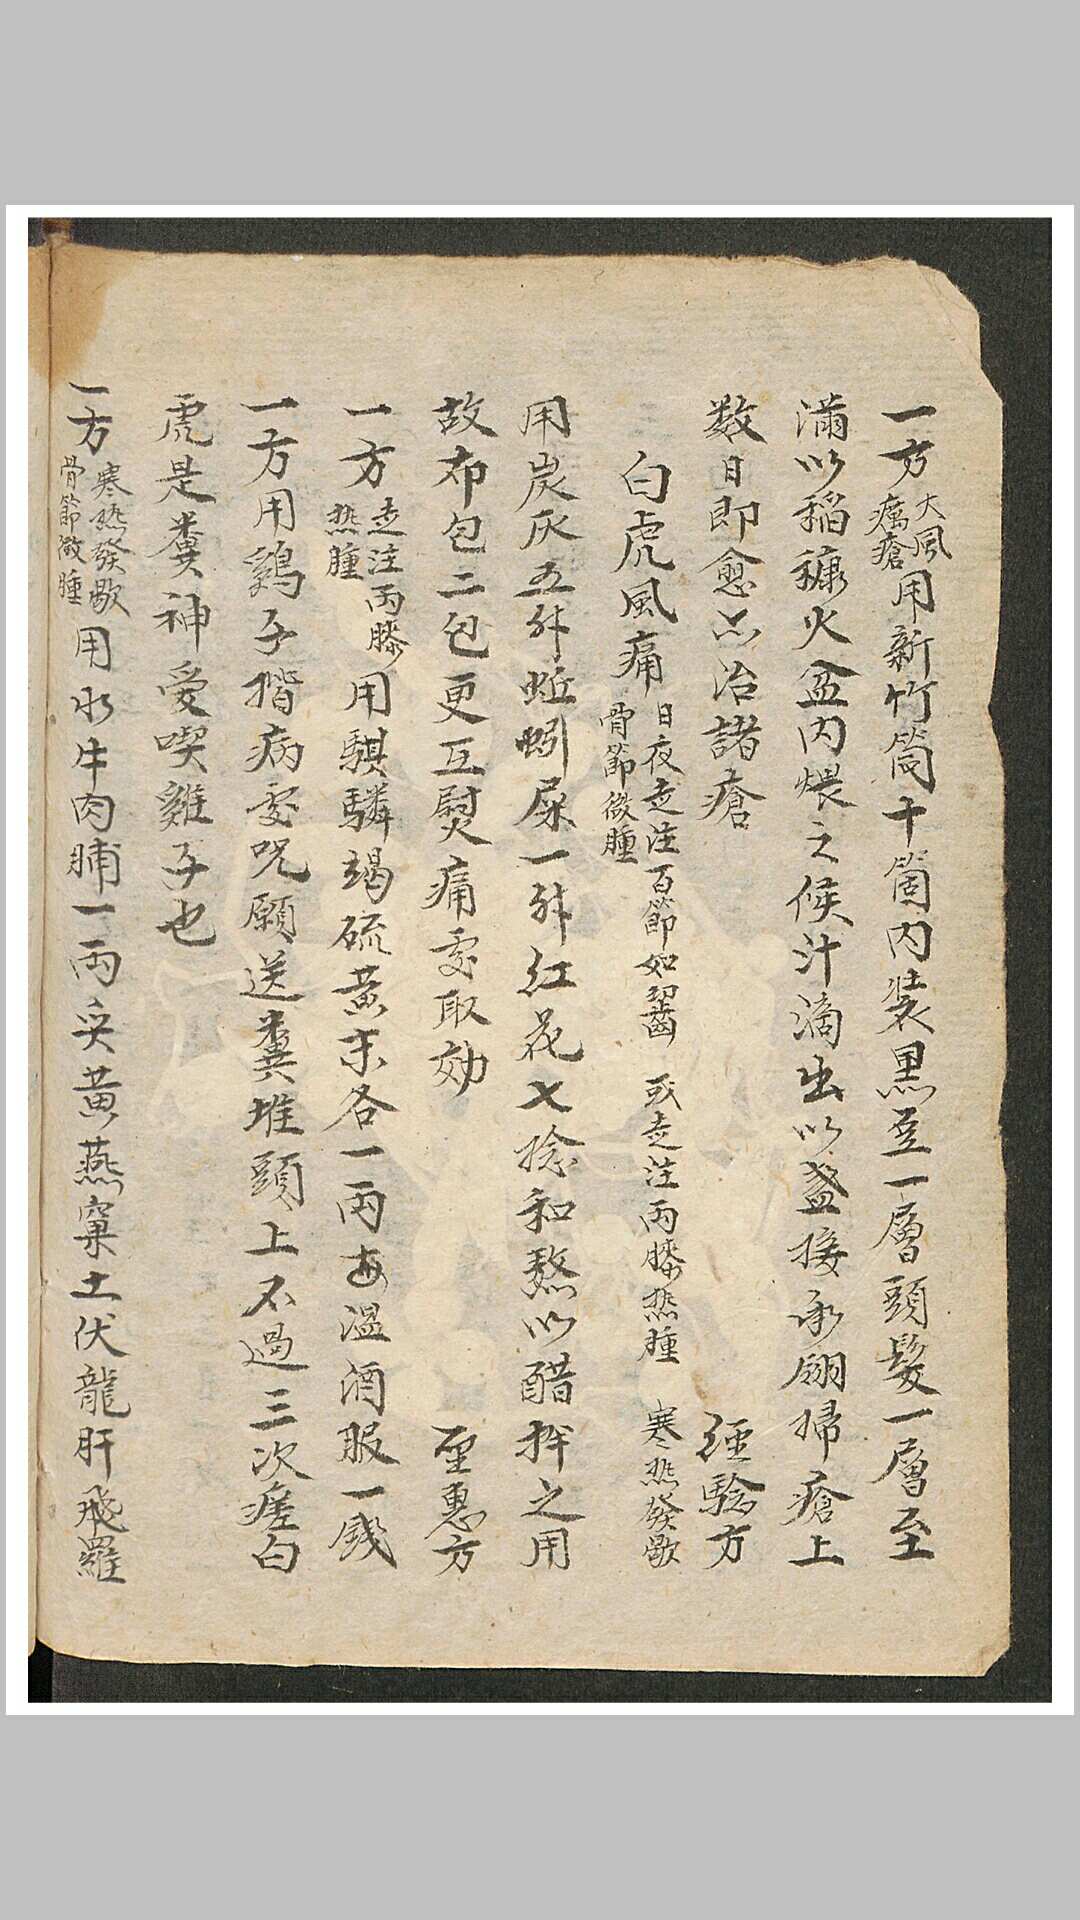 一方大風癘瘡用新竹筒十箇内装黒豆一層頭髮一層至
滿以稻穅火盆内煨之候汁滴出以盞接承翎掃瘡上
数日即愈亦治諸瘡 經驗方
白虎風痛日夜走注百節如齧 或走注兩膝热腫 寒热發歇骨節微腫
用炭灰五升蚯蚓屎一升紅花七捻和熬以醋拌之用
故布包二包更互熨痛處取効 聖惠方
一方走注兩膝热腫用騏驎竭硫黄末各一兩每温酒服一錢
一方用鷄子揩病處咒願送糞堆頭上不過三次瘥白
虎是糞神愛喫雞子也
一方寒热發歇骨節微腫用水牛肉脯一兩炙黄燕窠土伏龍肝飛羅